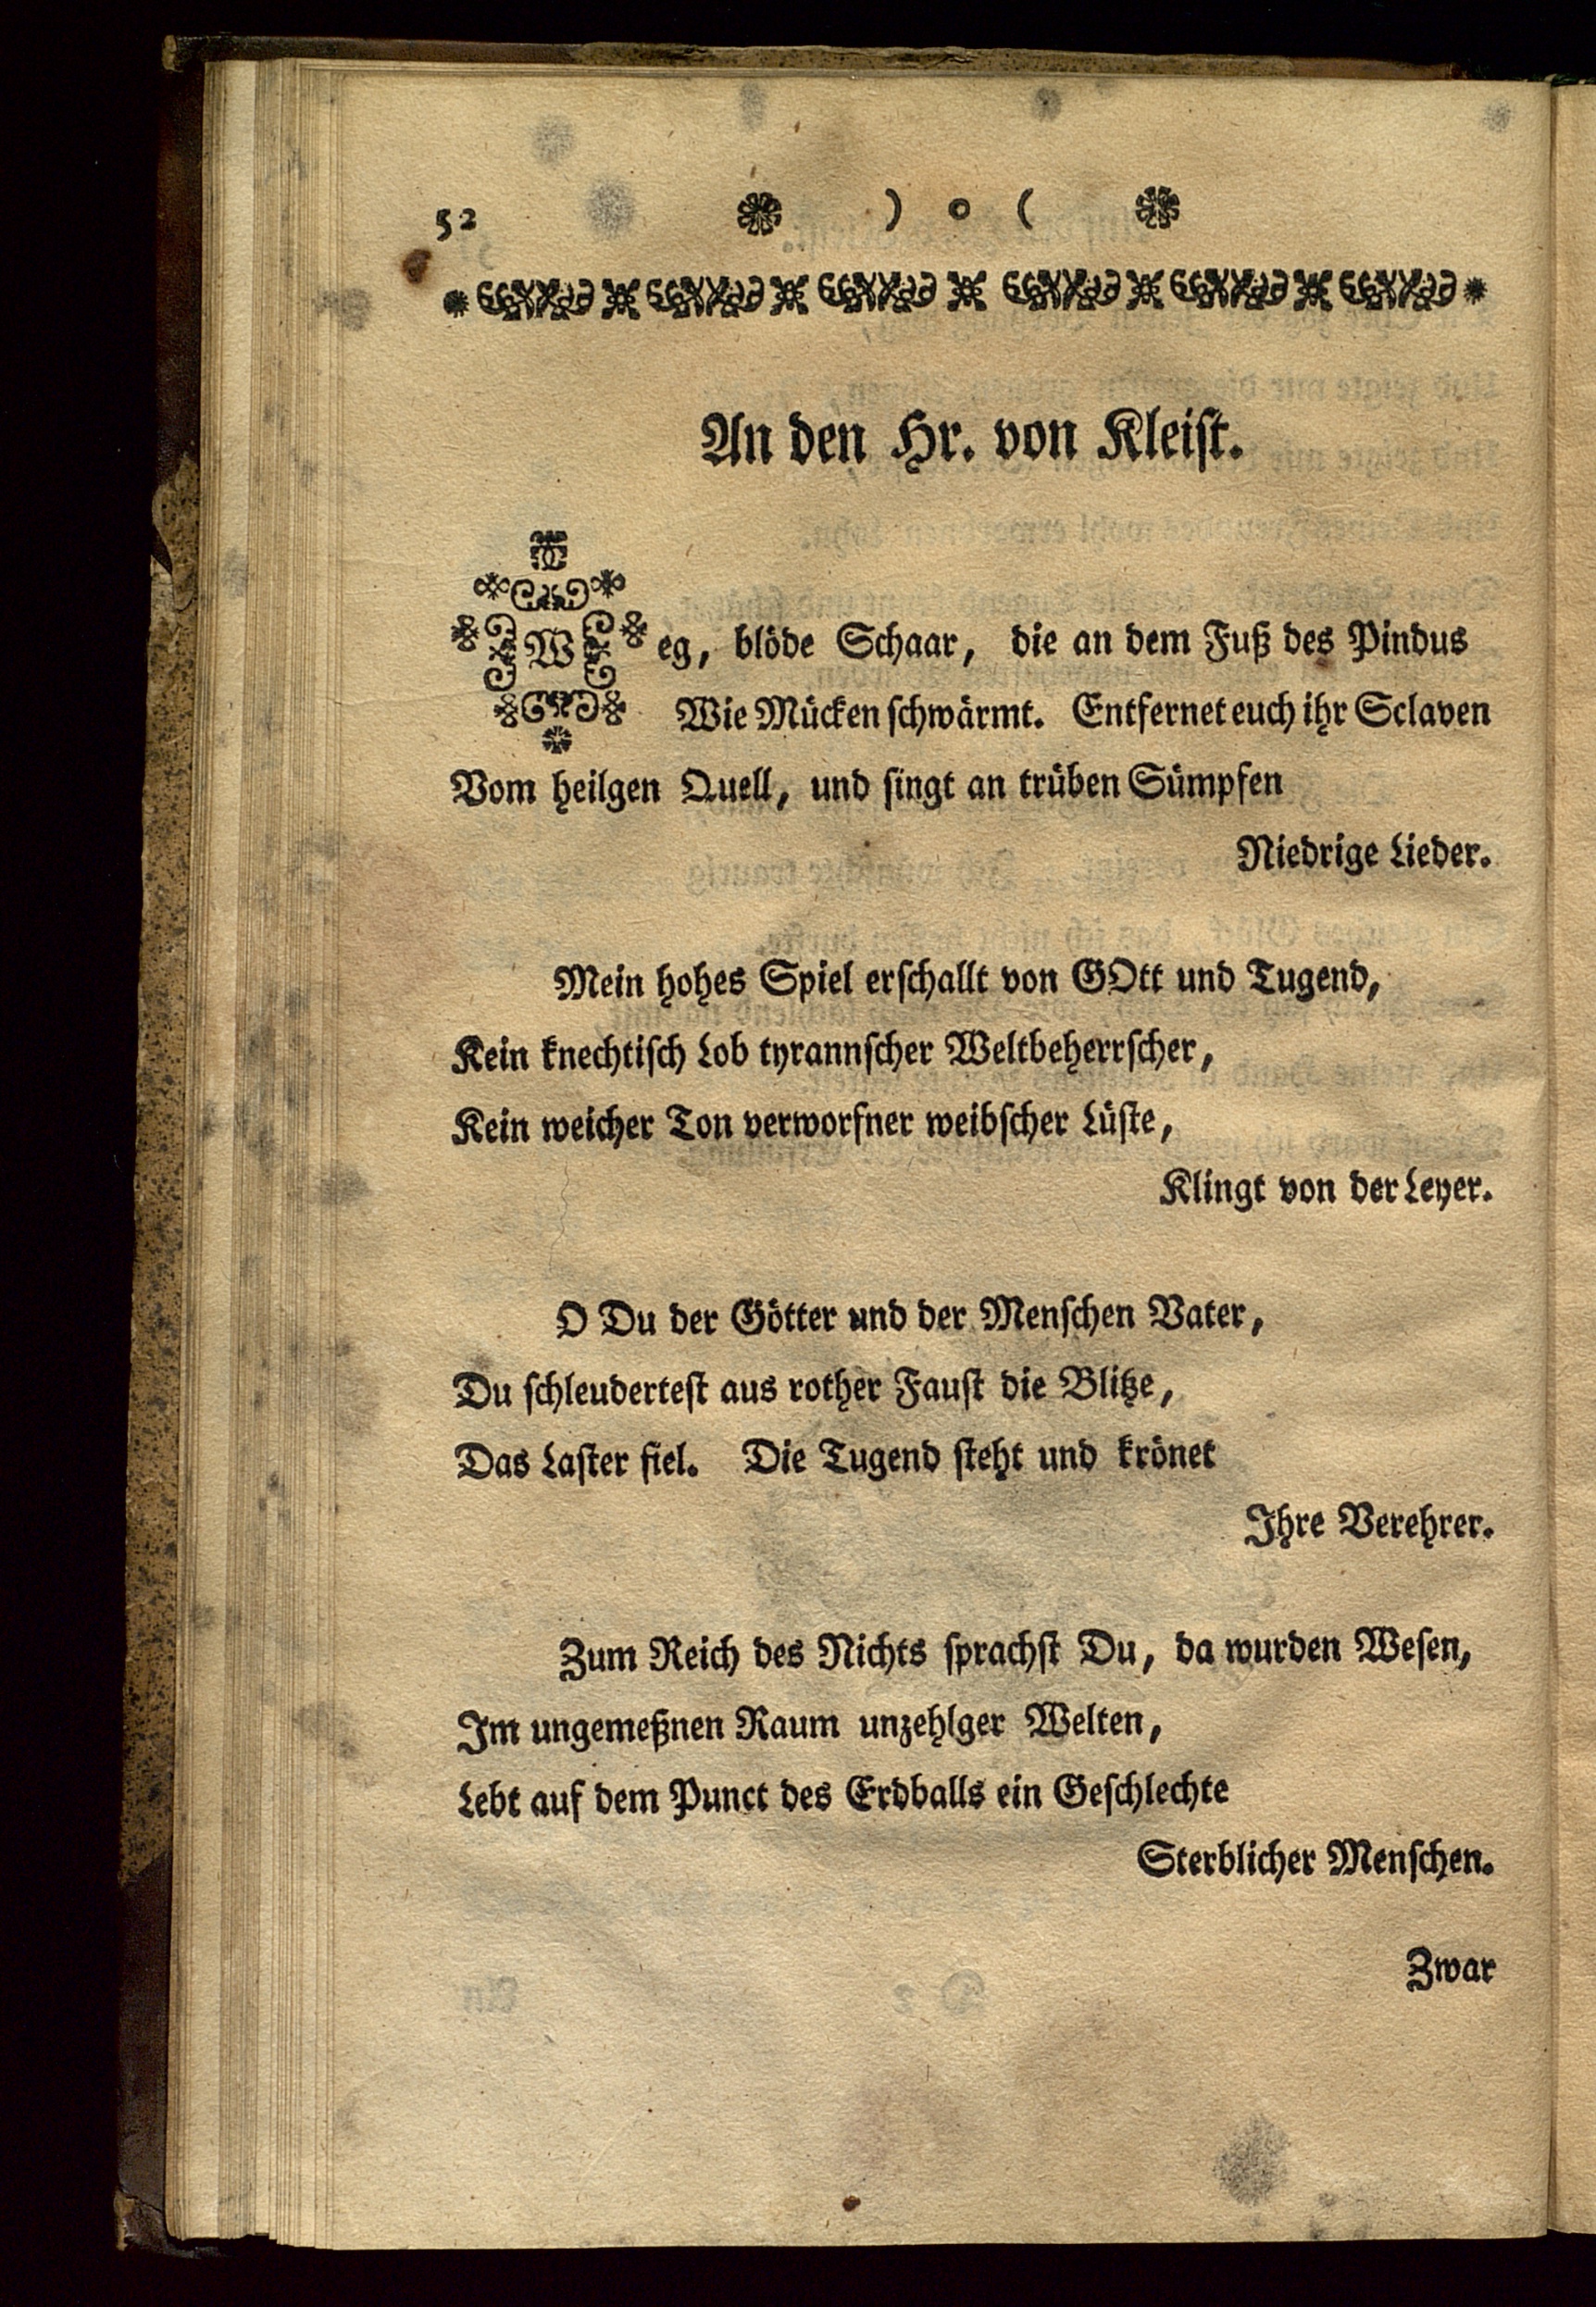 52 ) o (
An den Hr. von Kleist.
Weg, blöde Schaar, die an dem Fuß des Pindus
Wie Mücken schwärmt. Entfernet euch ihr Sclaven
Vom heilgen Quell, und singt an trüben Sümpfen
Niedrige Lieder.
Mein hohes Spiel erschallt von GOtt und Tugend,
Kein knechtisch Lob tyrannscher Weltbeherrscher,
Kein weicher Ton verworfner weibscher Lüste,
Klingt von der Leyer.
O Du der Götter und der Menschen Vater,
Du schleudertest aus rother Faust die Blitze,
Das Laster fiel. Die Tugend steht und krönet
Ihre Verehrer.
Zum Reich des Nichts sprachst Du, da wurden Wesen,
Im ungemeßnen Raum unzehlger Welten,
Lebt auf dem Punct des Erdballs ein Geschlechte
Sterblicher Menschen.
Zwar